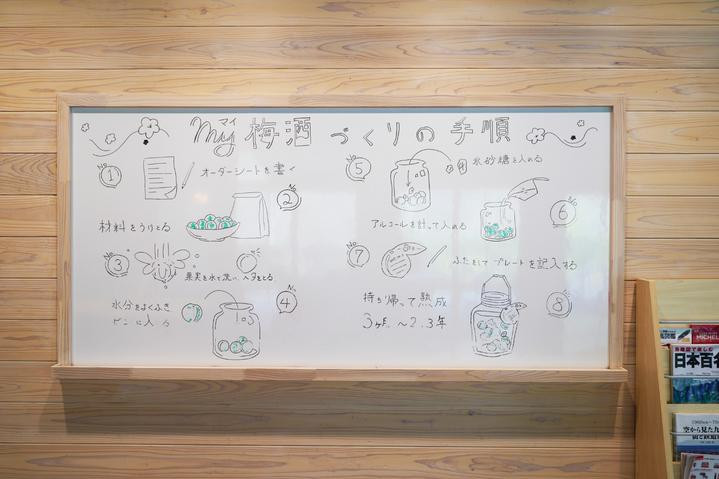 マイ
My 梅酒 づくりの手順
No 1
オーダーシートを書く
No 2
材料をうけとる
No 3
果実を水で洗い、ヘタをとる
No 4
水分をよくふき
ビンに入る
No 5
氷砂糖を入れる
6
アルコールを計って入れる
No 7
ふたをして プレートを記入する
8
持ち帰って熟成
3ヶ月〜2.3年
MICHEL
日本百名
空から見た九